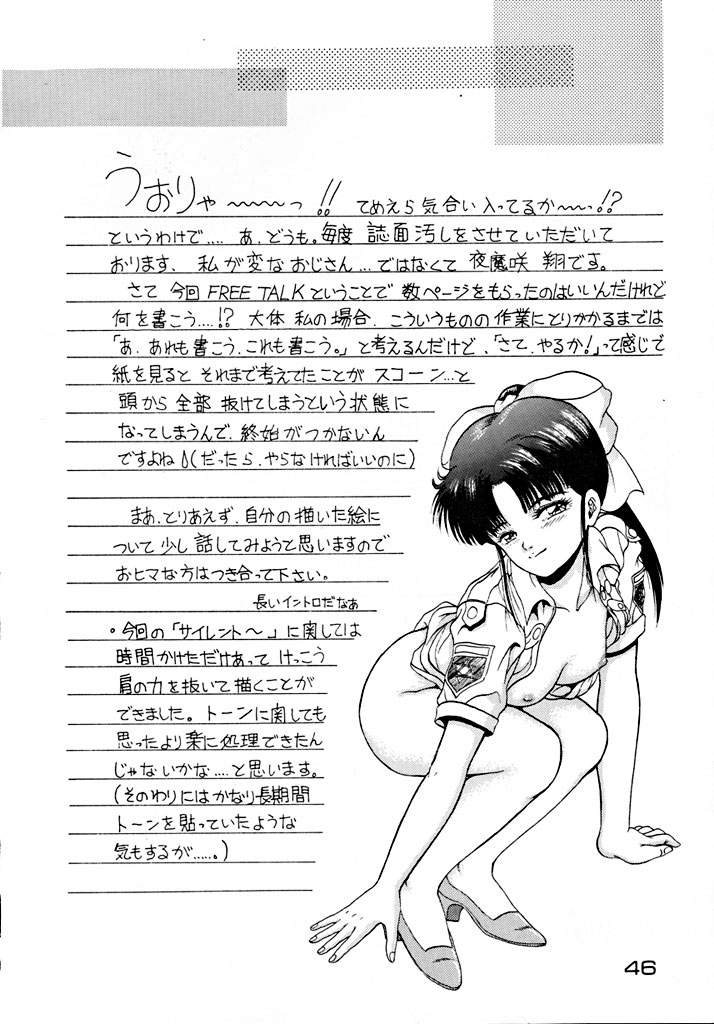 うおりゃ～～～っ!! てめえら気合い入ってるか～～っ!?
というわけで‥‥ あ、どうも。毎度 誌面汚しをさせていただいて
おります、 私が変なおじさん…ではなくて 夜魔咲 翔です。
さて 今回 FREE TALKということで 数ページをもらったのはいいんだけれど
何を書こう‥‥!? 大体 私の場合、こういうものの作業にとりかかるまでは
「あ、あれも書こう、これも書こう。」と考えるんだけど、「さて、やるか!」って感じで
紙を見ると それまで考えてたことが スコーン…と
頭から 全部 抜けてしまうという状態に
なってしまうんで、終始がつかないん
ですよね (だったら、やらなければいいのに)
まあ、とりあえず、自分の描いた絵に
ついて 少し 話してみようと思いますので
おヒマな方はつき合って下さい。
長いイントロだなぁ
・今回の「サイレント～」に関しては
時間かけただけあって けっこう
肩の力を抜いて描くことが
できました。トーンに関しても
思ったより楽に処理できたん
じゃないかな‥‥と思います。
(そのわりにはかなり長期間
トーンを貼っていたような
気もするが‥‥‥。)
46